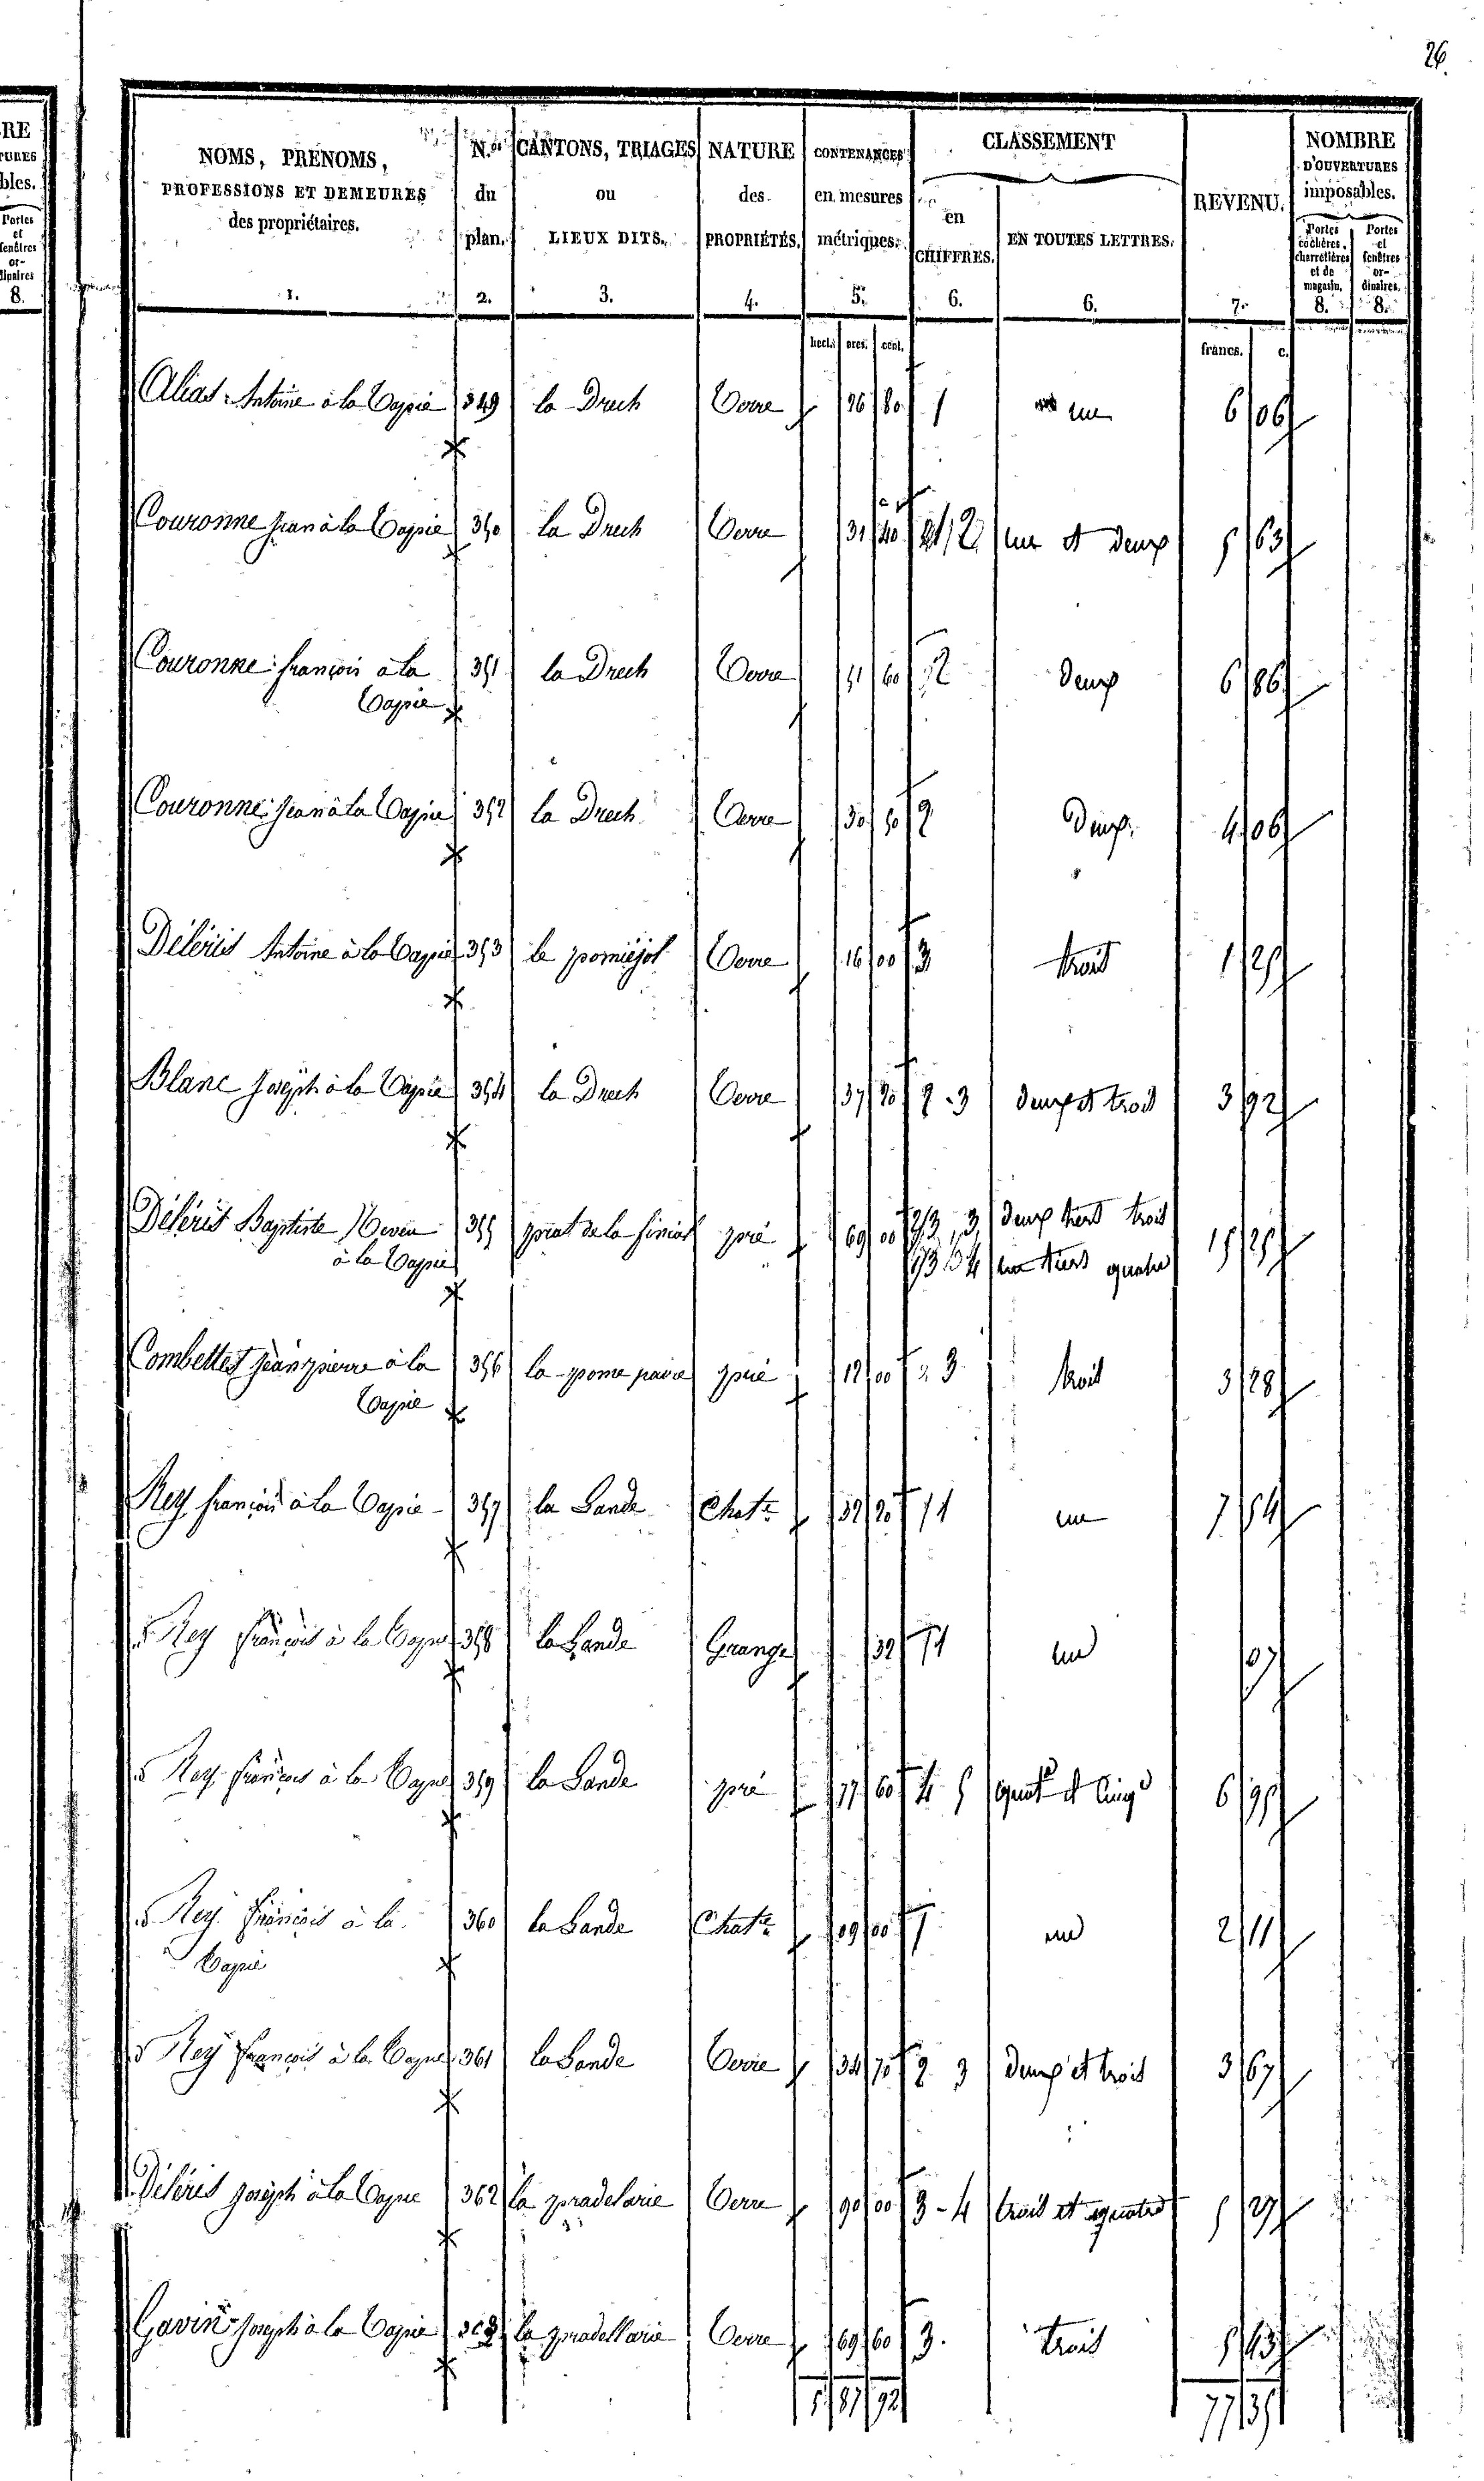 26.
RE
TURES
bles.
Portes
et
fenêtres
or-
dinaires
8.
NOMS, PRENOMS,
PROFESSIONS ET DEMEURES
des propriétaires.
1.
N.os
du
plan.
2.
CANTONS, TRIAGES
ou
LIEUX DITS.
3.
NATURE
des
PROPRIÉTÉS.
4.
CONTENANCES
en mesures
métriques.
5.
CLASSEMENT
en
CHIFFRES.
6.
EN TOUTES LETTRES.
6.
REVENU.
7.
NOMBRE
D'OUVERTURES
imposables.
Portes
cochères,
charretières
et de
magasin.
8.
Portes
et
fenêtres
or-
dinaires.
8.
hect. ares. cent.
francs. c.
Alias Antoine à la Capie 349 la Drech Terre 26 80 1 une 6 06
Couronne Jean à la Capie 350 la Drech Terre 31 40 1/2 une et deux 5 63
Couronne françois à la 351 la Drech Terre 51 60 2 deux 6 86
Capie
Couronne Jean à la Capie 352 la Drech Terre 30 50 2 deux 4 06
Déléris Antoine à la Capie 353 le Terre 16 00 3 trois 1 25
Blanc Joseph à la Capie 354 la Drech Terre 37 20 2 3 deux et trois 3 92
Déléris Baptiste à la Capie 355 prat de la pré 69 00 2/3 3 deux tiers trois 15 25
1/3 4 un tiers quatre
Combettes Jean pierre à la 356 la pré 12 00 3 trois 3 28
Capie
Rey françois à la Capie 357 la Lande Chat.re 32 20 1 une 7 54
Rey françois à la Capie 358 la Lande Grange 32 1 une 07
Rey françois à la Capie 359 la Lande pré 77 60 4 5 quat.e et cinq 6 95
Rey françois à la 360 la Lande Chat.re 09 00 1 une 2 11
Capie
Rey françois à la Capie 361 la Lande Terre 34 70 2 3 deux et trois 3 67
Déléris Joseph à la Capie 362 la pradelarie Terre 90 00 3-4 trois et quatre 5 27
Gavin Joseph à la Capie 363 la pradellarie Terre 69 60 3. trois 5 43
5 87 92
77 35